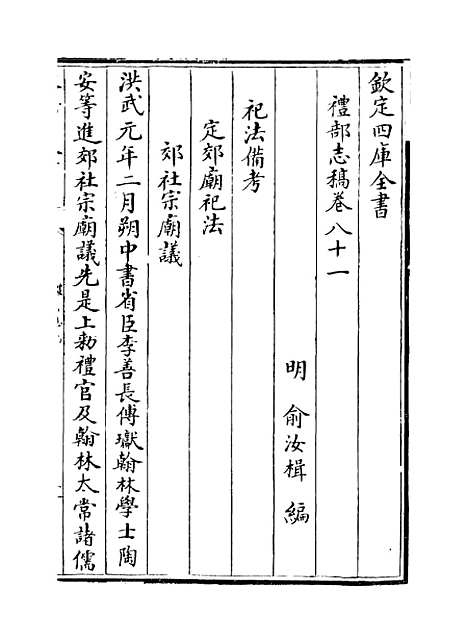 欽定四庫全書
禮部志稿卷八十一
明 俞汝楫 編
祀法備考
定郊廟祀法
郊社宗廟議
洪武元年二月朔中書省臣李善長傅瓛翰林學士陶
安等進郊社宗廟議先是上勅禮官及翰林太常諸儒